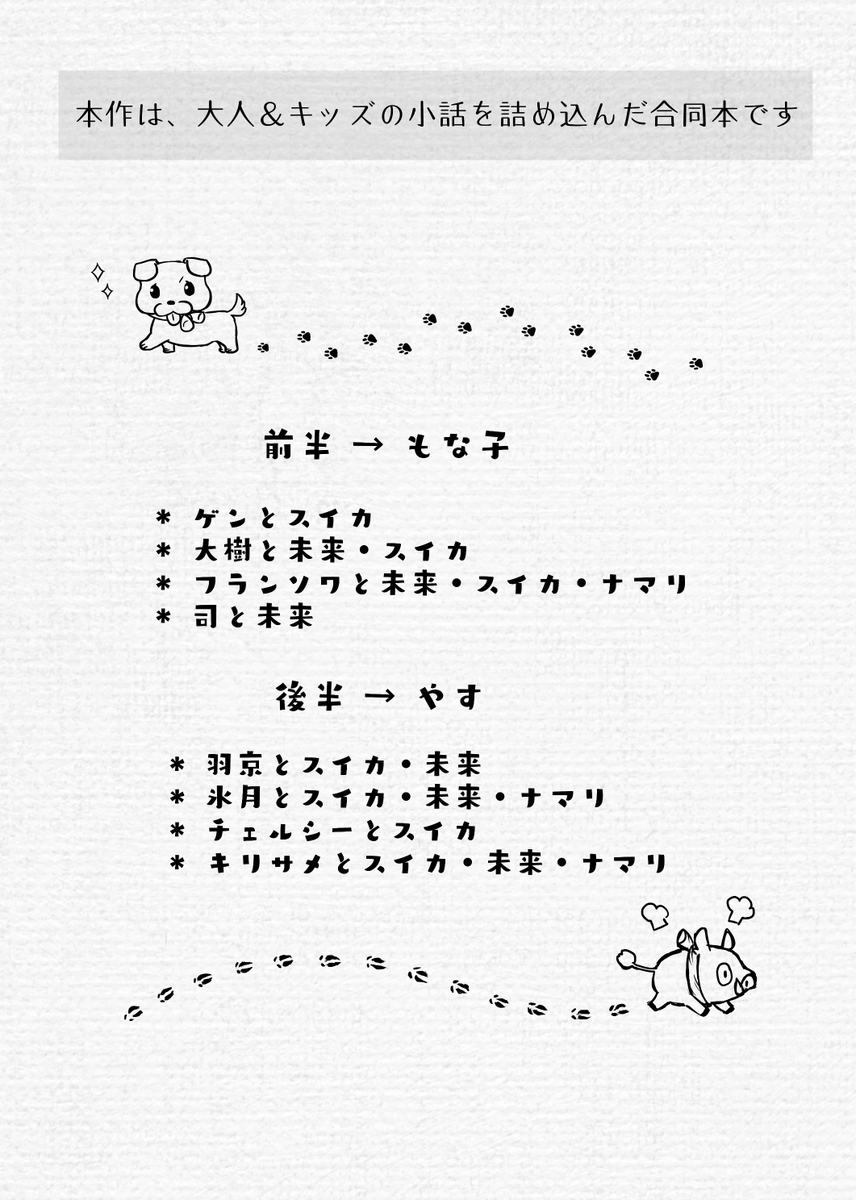 本作は、大人&キッズの小話を詰め込んだ合同本です
前半 → もな子
* ゲンとスイカ
* 大樹と未来・スイカ
* フランソワと未来・スイカ・ナマリ
* 司と未来
後半 → やす
* 羽京とスイカ・未来
* 氷月とスイカ・未来・ナマリ
* チェルシーとスイカ
* キリサメとスイカ・未来・ナマリ